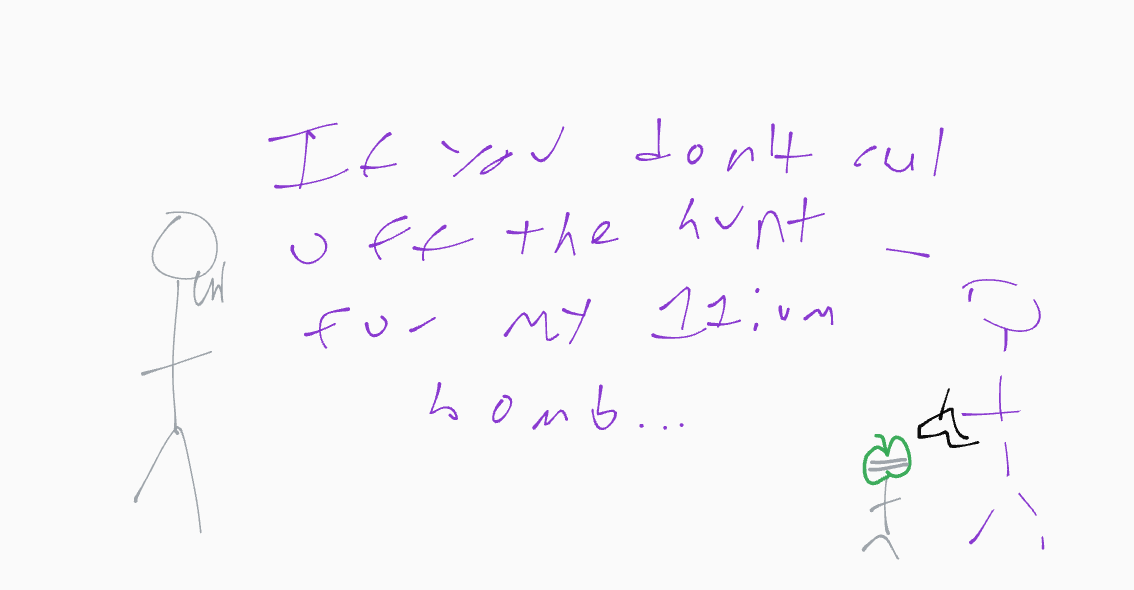 If you don't cul
off the hunt -
for my 11ium
bomb...